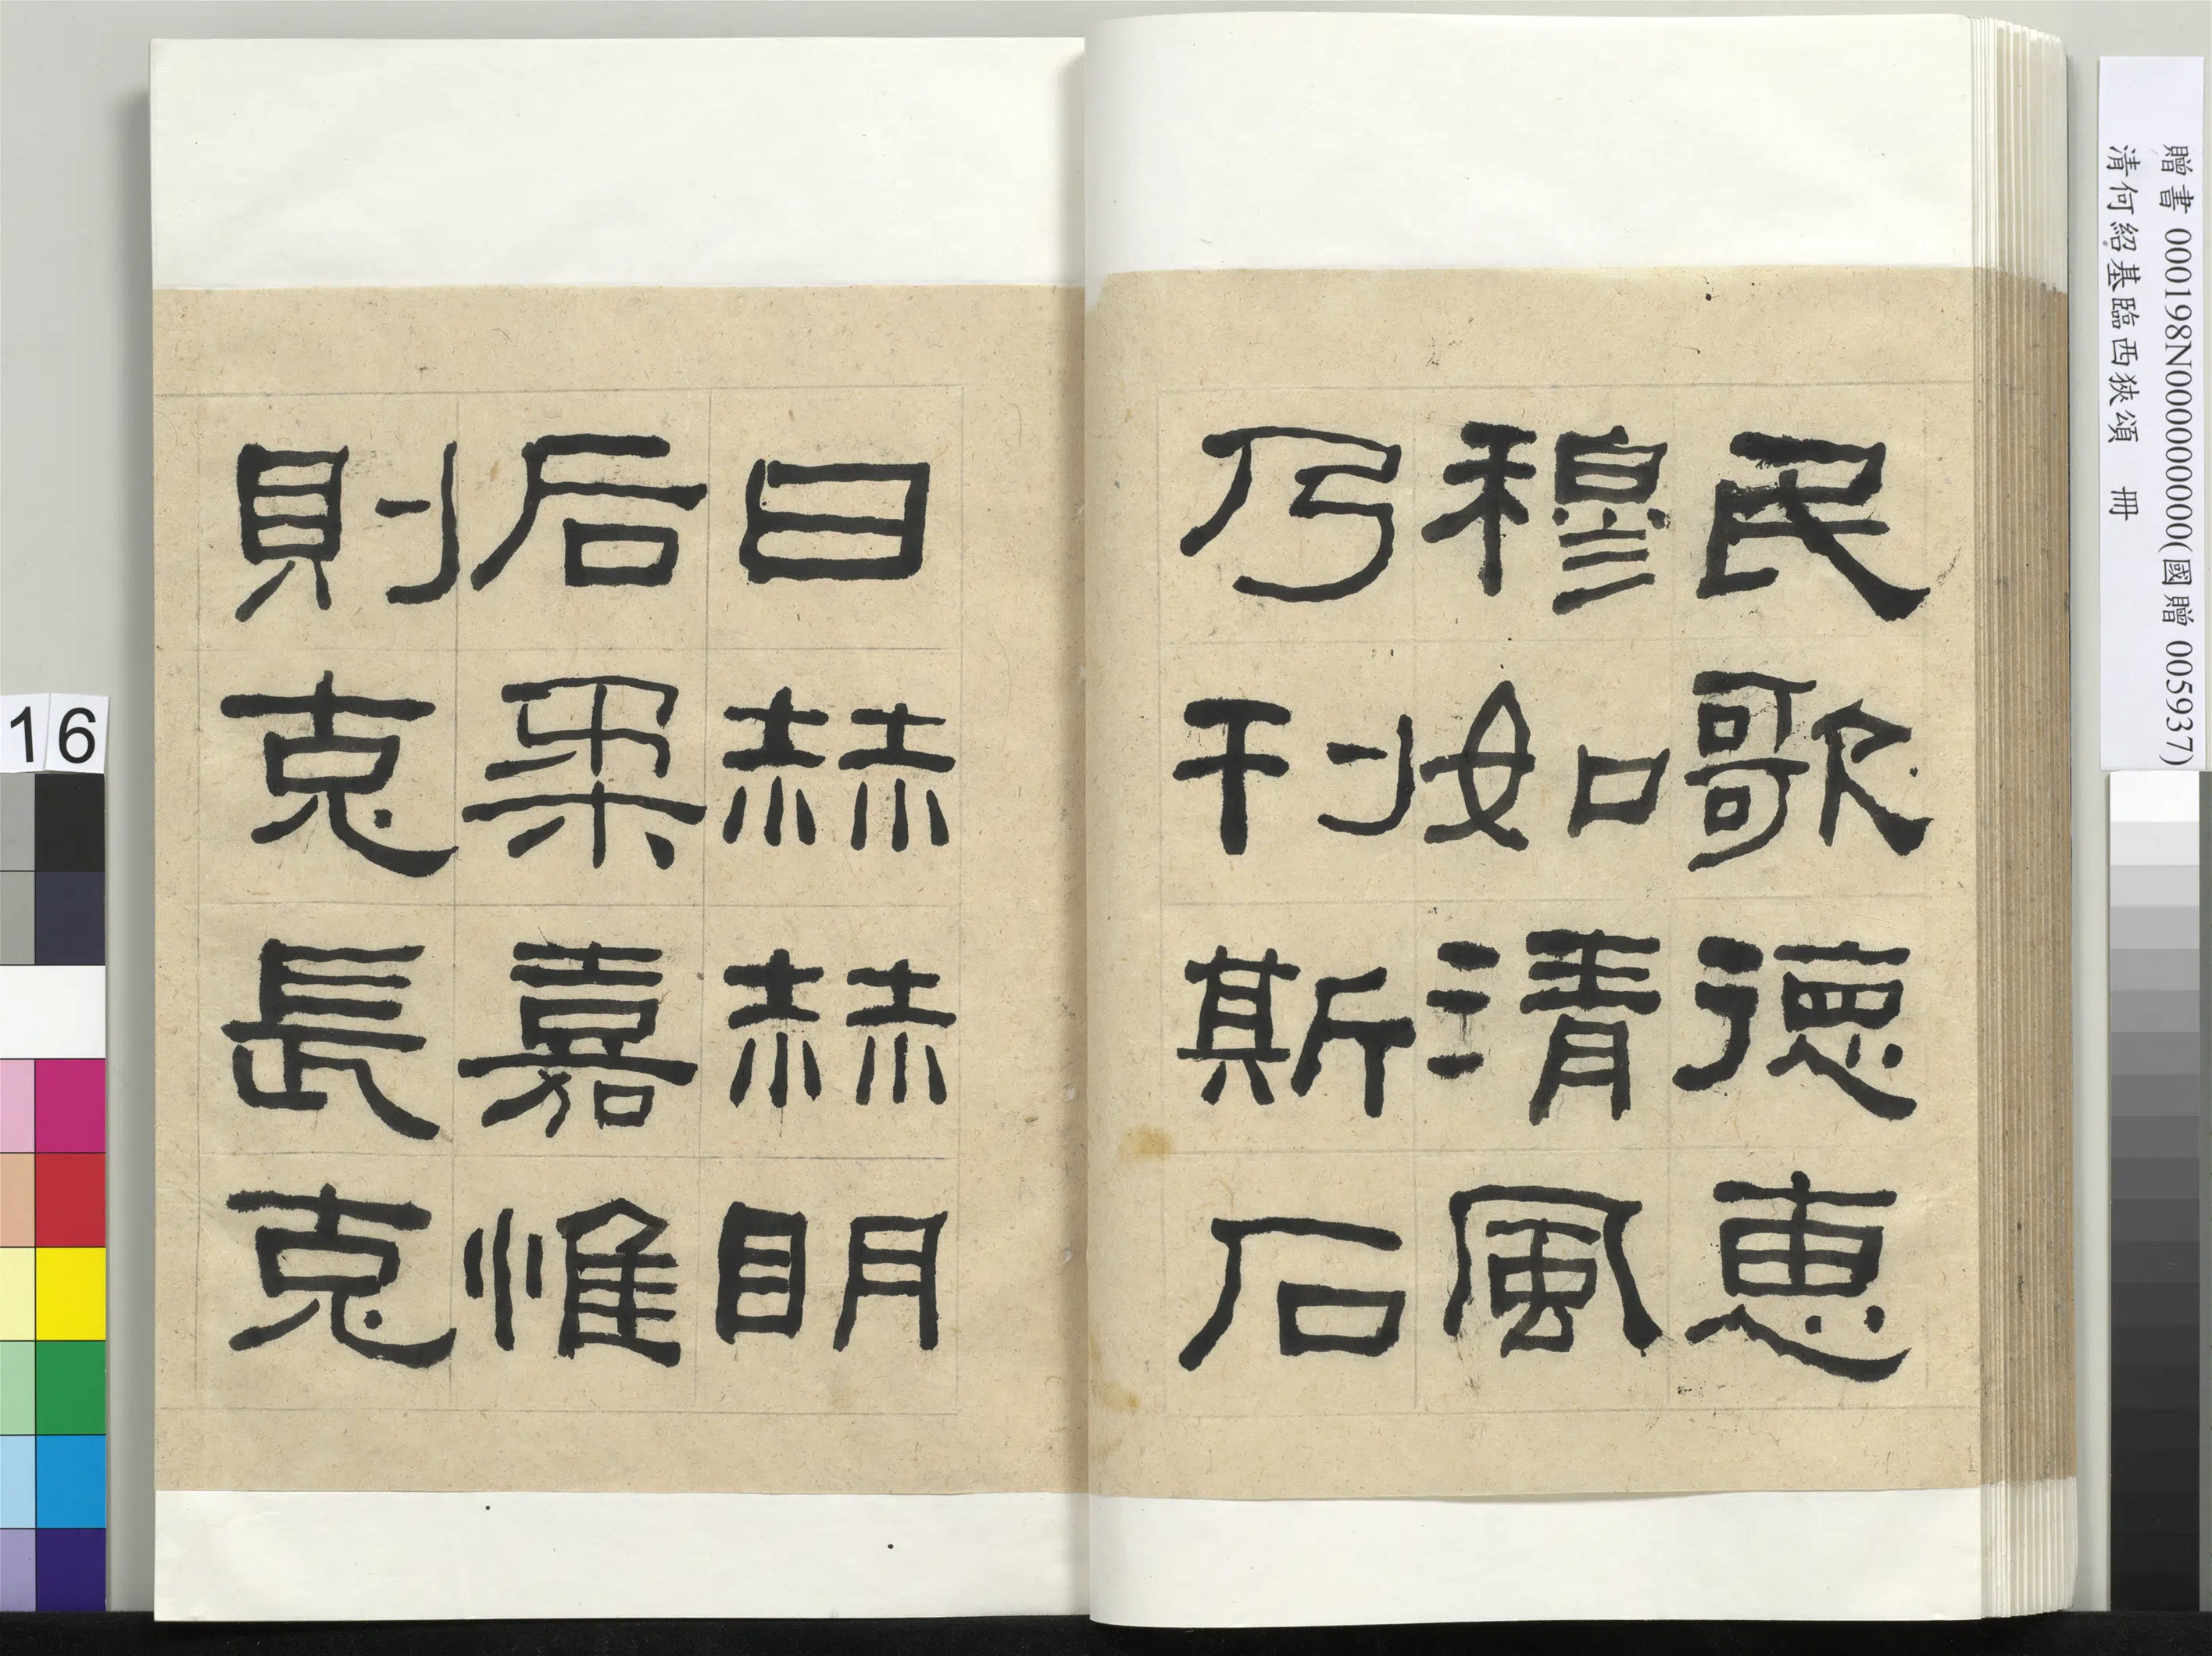 民歌德惠
穆如清風
乃刊斯石
曰赫赫明
后柔嘉惟
則克長克
16
贈書 000198N000000000(國贈 005937)
清何紹基臨西狹頌 冊